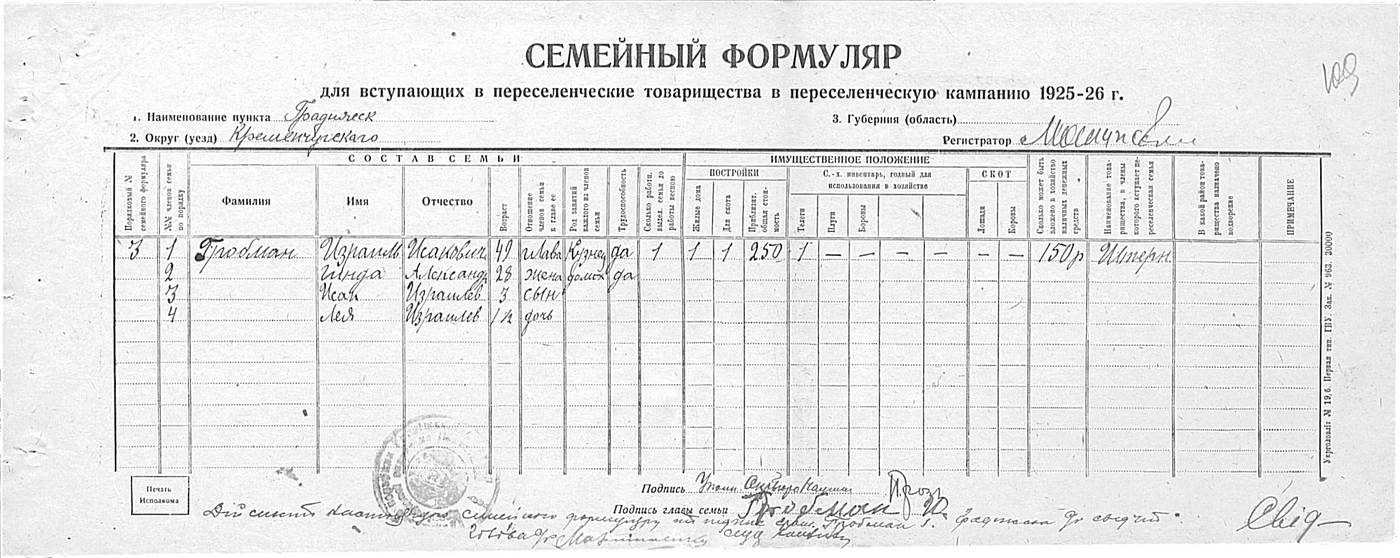 109
СЕМЕЙНЫЙ ФОРМУЛЯР
для вступающих в переселенческие товарищества в переселенческую кампанию 1925-26 г.
1. Наименование пункта Градижск
3. Губерния (область)
2. Округ (уезд) Кременчугского
Регистратор
СОСТАВ СЕМЬИ
ИМУЩЕСТВЕННОЕ ПОЛОЖЕНИЕ
Порядковый № семейного формуляра
№№ членов семьи по порядку
Фамилия
Имя
Отчество
Возраст
Отношение членов семьи к главе ее
Род занятий каждого из членов семьи
Трудоспособность
Сколько работн. выдел. семья до работы весною
ПОСТРОЙКИ
Жилые дома
Для скота
Приблизит. общая стоимость
С.-х. инвентарь, годный для использования в хозяйстве
Телеги
Плуги
Бороны
СКОТ
Лошади
Коровы
Сколько может быть вложено в хозяйство наличных денежных средств
Наименование товарищества, в члены которого вступает переселенческая семья
В какой район товарищества назначено водворение
ПРИМЕЧАНИЕ
3 1 Гробман Израиль Исакович 49 глава кузнец да 1 1 1 250 1 — — — — — — — 150р Штерн
2 Гинда Александр 28 жена домох да
3 Исак Израилев 3 сын
4 Лея Израилев 1½ дочь
Укрголовліт № 19,6. Первая тип. ГПУ. Зак. № 963. 30000
Печать Исполкома
Подпись
Подпись главы семьи Гробман И.